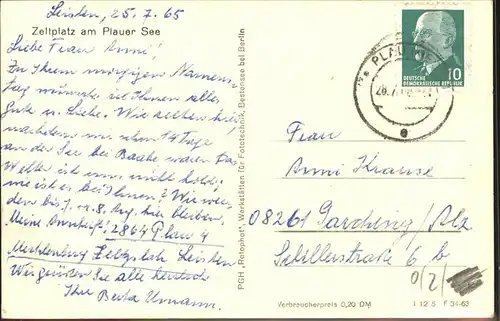 Leisten, 25. 7. 65
Zeltplatz am Plauer See
Liebe Frau Anni!
Zu Ihrem morgigen Namens-
tag wünsche ich Ihnen alles
Gute u. Liebe. Wir zelten hier,
nachdem wir schon 14 Tage
an der See bei Baabe waren. Das
Wetter ist uns nicht hold,
wie ist es bei Ihnen? Wir wer-
den bis 7. od. 8. Aug. hier bleiben.
Meine Anschrift: 2864 Plau 4
Mecklenburg Zeltplatz Leisten
Wir grüßen Sie alle herzlich
Ihre Berta
PGH „Rotophot", Werkstätten für Fototechnik, Bestensee bei Berlin
PLAU
DEUTSCHE
DEMOKRATISCHE REPUBLIK
10
e
Frau
Anni Krause
08261 Garching/Alz
Schillerstraße 6 b
0/2/
Verbraucherpreis 0,20 DM
I 12 5 F 34-63